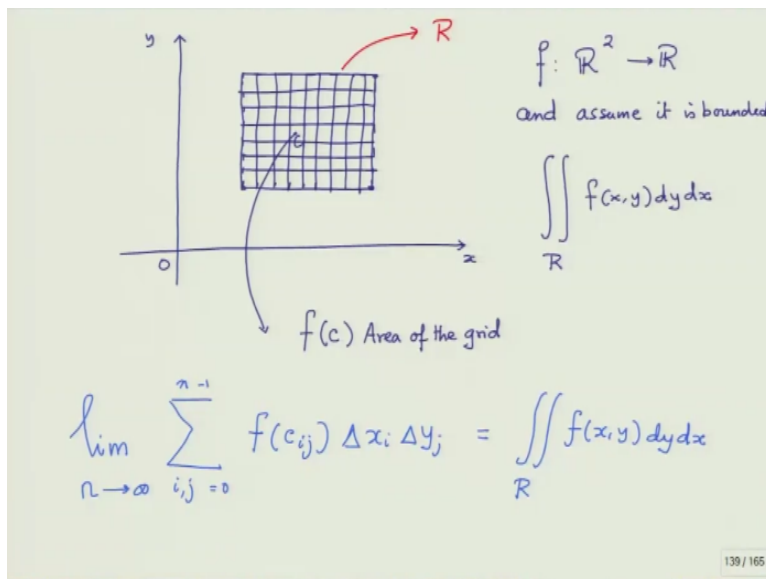 y
R
f: ℝ² → ℝ
and assume it is bounded
c
∬_R f(x,y) dy dx
0
x
f(c) Area of the grid
lim_{n→∞} ∑_{i,j=0}^{n-1} f(c_{ij}) Δx_i Δy_j = ∬_R f(x,y) dy dx
139 / 165